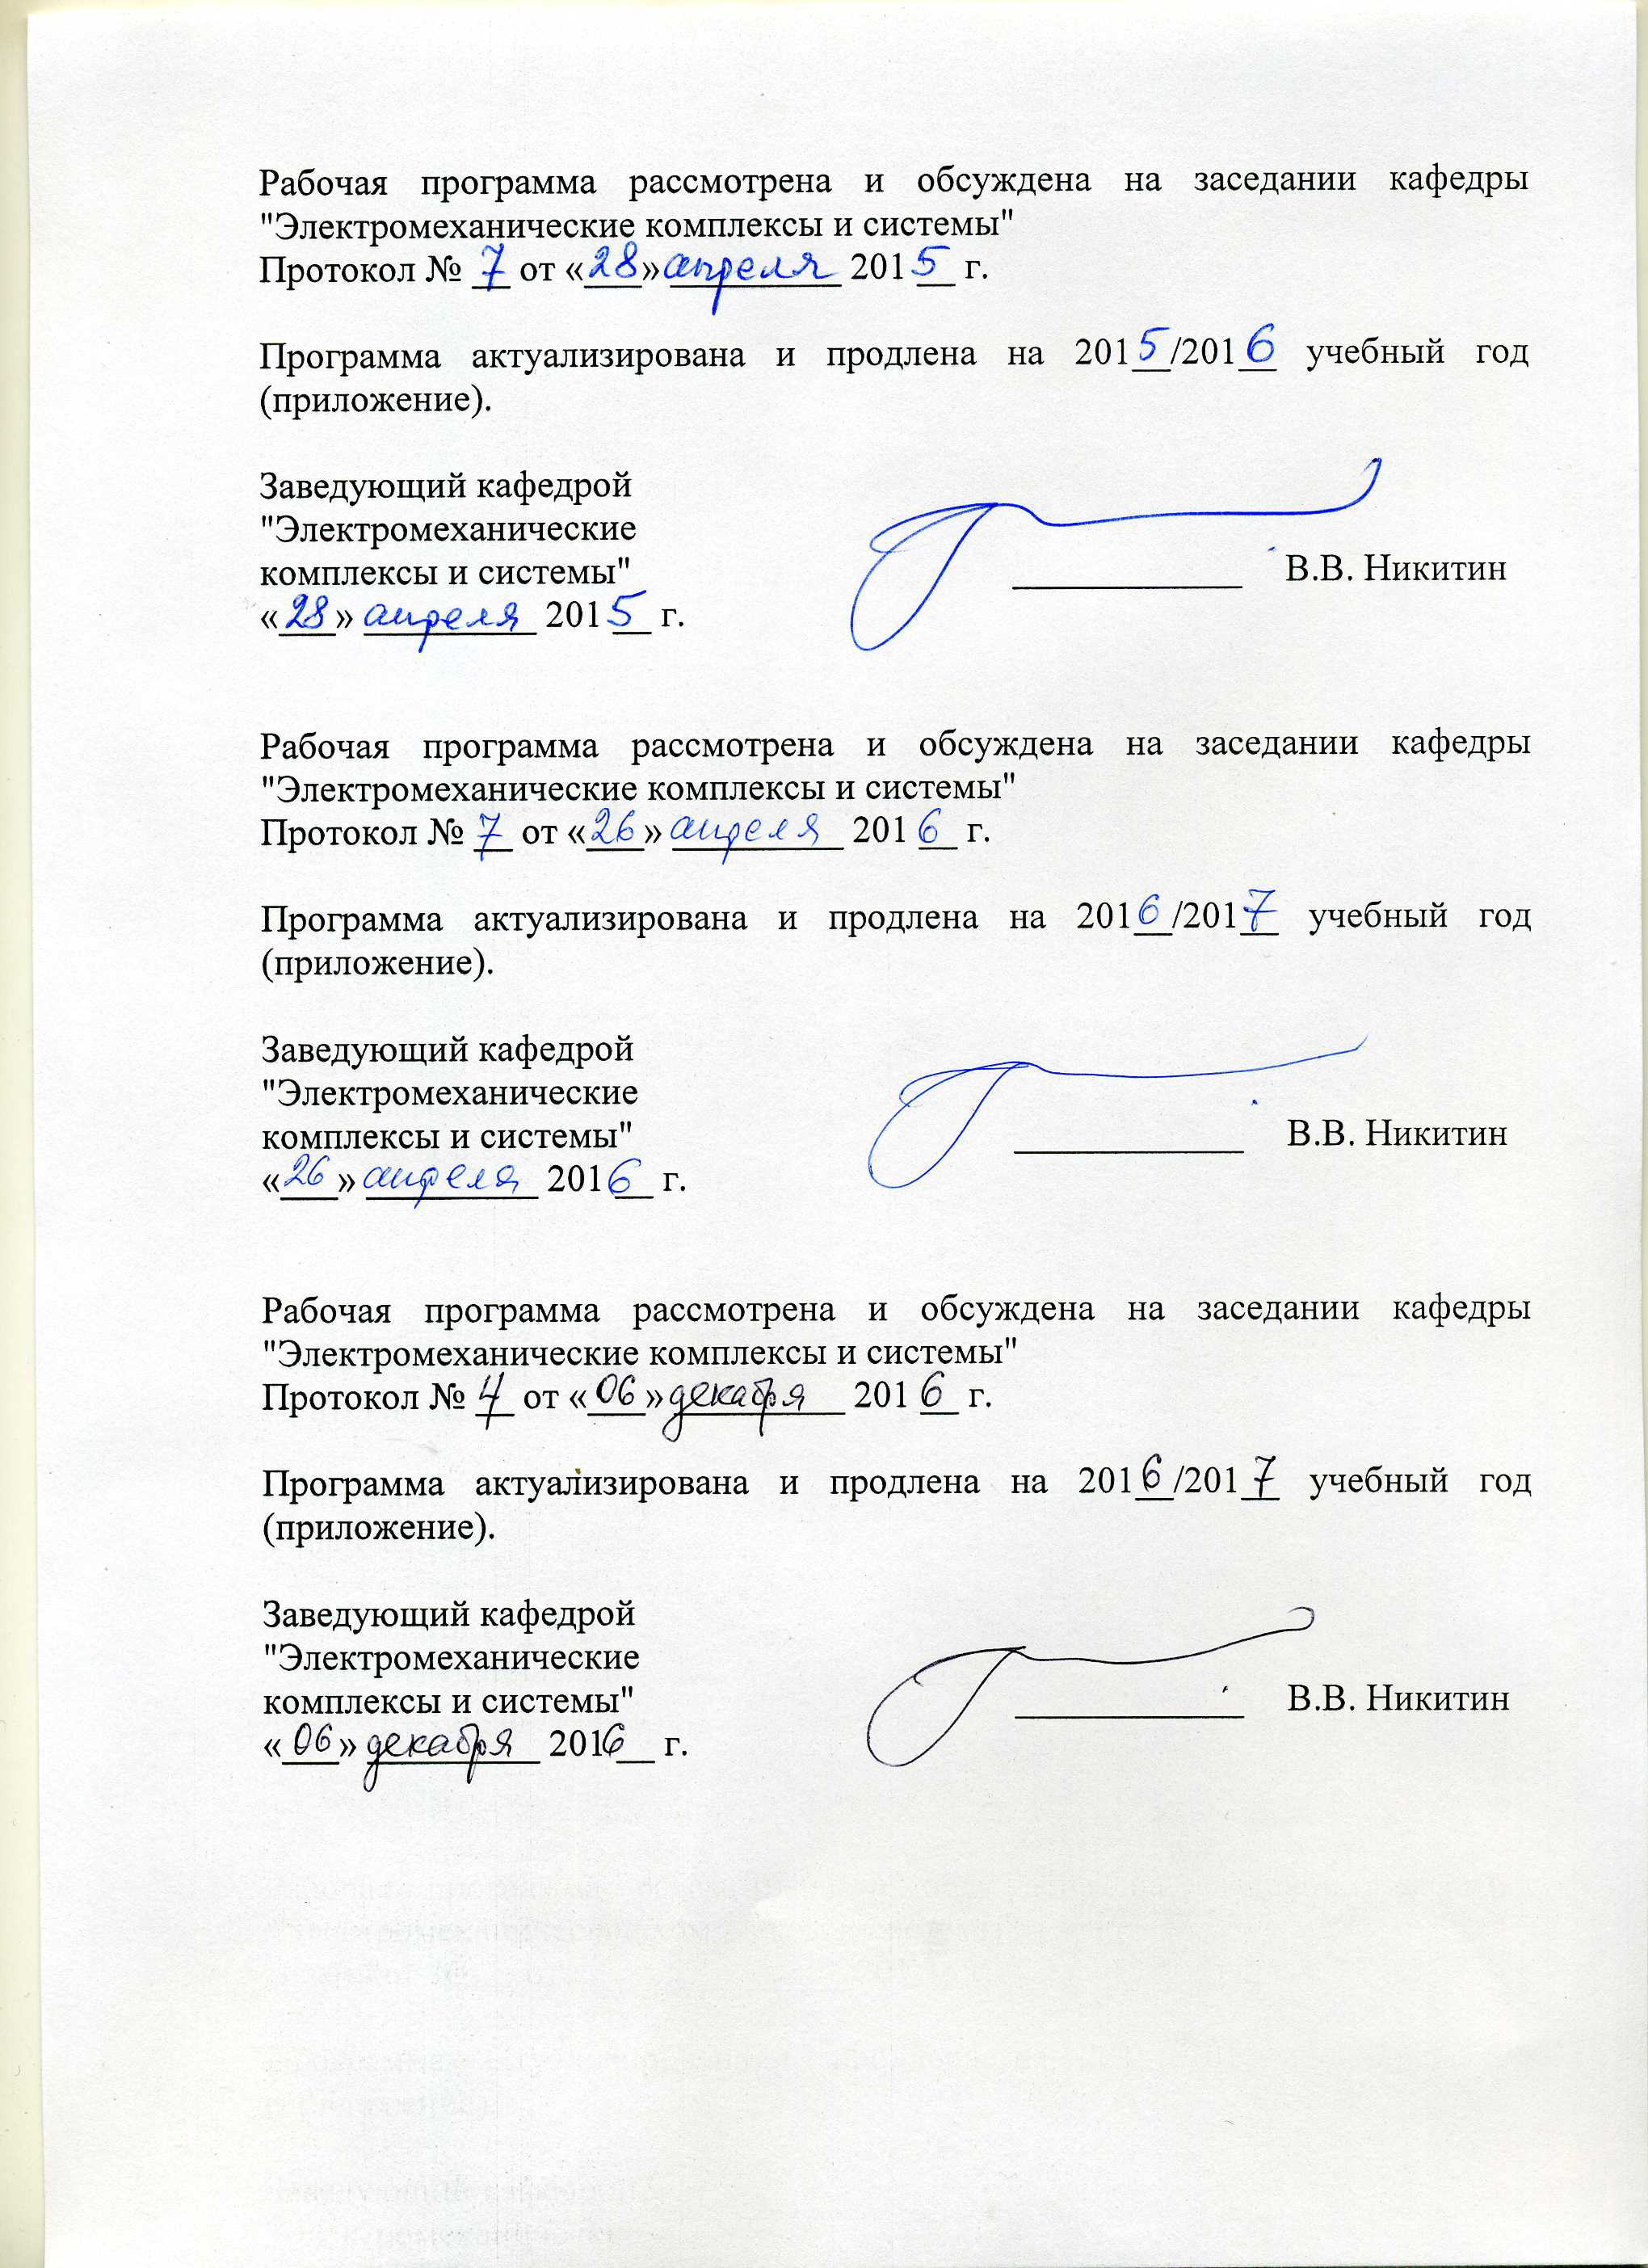 Рабочая программа рассмотрена и обсуждена на заседании кафедры
"Электромеханические комплексы и системы"
Протокол № 7 от «28» апреля 2015 г.
Программа актуализирована и продлена на 2015/2016 учебный год
(приложение).
Заведующий кафедрой
"Электромеханические
комплексы и системы" В.В. Никитин
«28» апреля 2015 г.
Рабочая программа рассмотрена и обсуждена на заседании кафедры
"Электромеханические комплексы и системы"
Протокол № 7 от «26» апреля 2016 г.
Программа актуализирована и продлена на 2016/2017 учебный год
(приложение).
Заведующий кафедрой
"Электромеханические
комплексы и системы" В.В. Никитин
«26» апреля 2016 г.
Рабочая программа рассмотрена и обсуждена на заседании кафедры
"Электромеханические комплексы и системы"
Протокол № 4 от «06» декабря 2016 г.
Программа актуализирована и продлена на 2016/2017 учебный год
(приложение).
Заведующий кафедрой
"Электромеханические
комплексы и системы" В.В. Никитин
«06» декабря 2016 г.